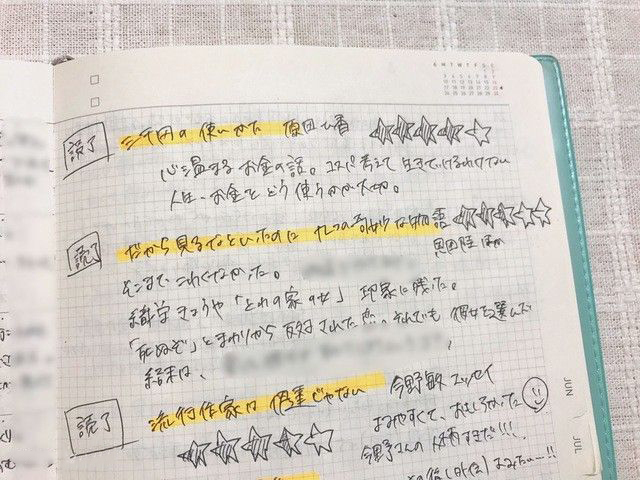 S M T W T F S
読了
三千円の使いかた 原田ひ香
心温まるお金の話。コスパ考えて生きていけるわけでない
人生、お金をどう使うかが大切。
読了
だから見るなといったのに 九つの奇妙な物語
恩田陸 ほか
そこまでこわくなかった。
織守きょうや「とわの家の女」印象に残った。
「死ぬぞ」とまわりから反対された恋。それでも彼女を選んだ
結末は、
読了
流行作家は伊達じゃない 今野敏 エッセイ
よみやすくて、おもしろかった
今野さんの人柄すきだ!!!
JUN
JUL